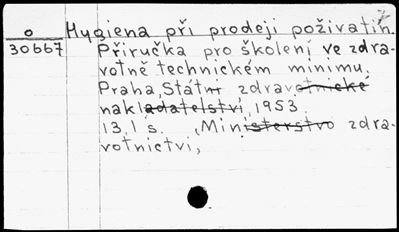 o Hygiena při prodeji poživatin.
30667 Příručka pro školení ve zdra-
votně technickém minimu,
Praha, Státní zdravotnické
nakladatelství, 1953.
13,1 s. , Ministerstvo zdra-
votnictví,